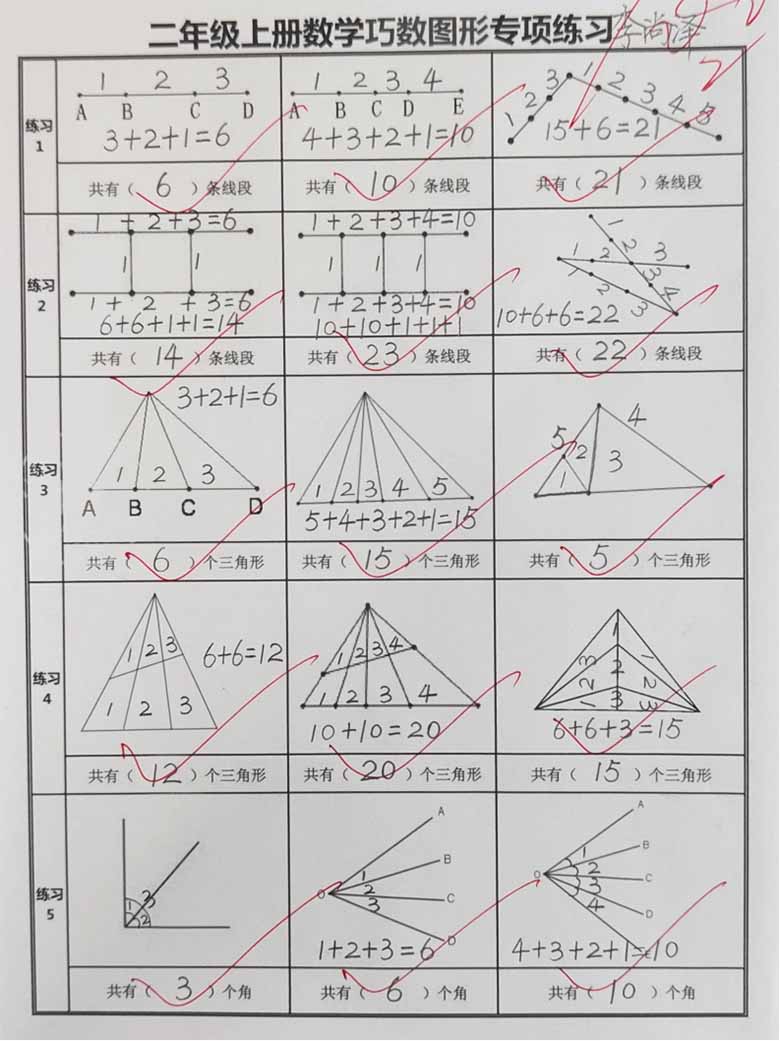 二年级上册数学巧数图形专项练习
李尚泽
练习1
1 2 3
A B C D
3+2+1=6
共有（ 6 ）条线段
1 2 3 4
A B C D E
4+3+2+1=10
共有（ 10 ）条线段
1 2 3 1 2 3 4 5
15+6=21
共有（ 21 ）条线段
练习2
1 + 2 + 3 = 6
1 1
1 + 2 + 3 = 6
6+6+1+1=14
共有（ 14 ）条线段
1 + 2 + 3 + 4 = 10
1 1 1
1 + 2 + 3 + 4 = 10
10+10+1+1+1
共有（ 23 ）条线段
1 2 3 4
1 2 3
1 2 3
10+6+6=22
共有（ 22 ）条线段
练习3
3+2+1=6
1 2 3
A B C D
共有（ 6 ）个三角形
1 2 3 4 5
5+4+3+2+1=15
共有（ 15 ）个三角形
4
5 2
1 3
共有（ 5 ）个三角形
练习4
1 2 3
6+6=12
1 2 3
共有（ 12 ）个三角形
1 2 3 4
1 2 3 4
10+10=20
共有（ 20 ）个三角形
1
3 2 1
2 2
1 3 3
6+6+3=15
共有（ 15 ）个三角形
练习5
1 3
2
共有（ 3 ）个角
A
1 B
O 2
3 C
D
1+2+3=6
共有（ 6 ）个角
A
1 B
O 2
3 C
4 D
4+3+2+1=10
共有（ 10 ）个角